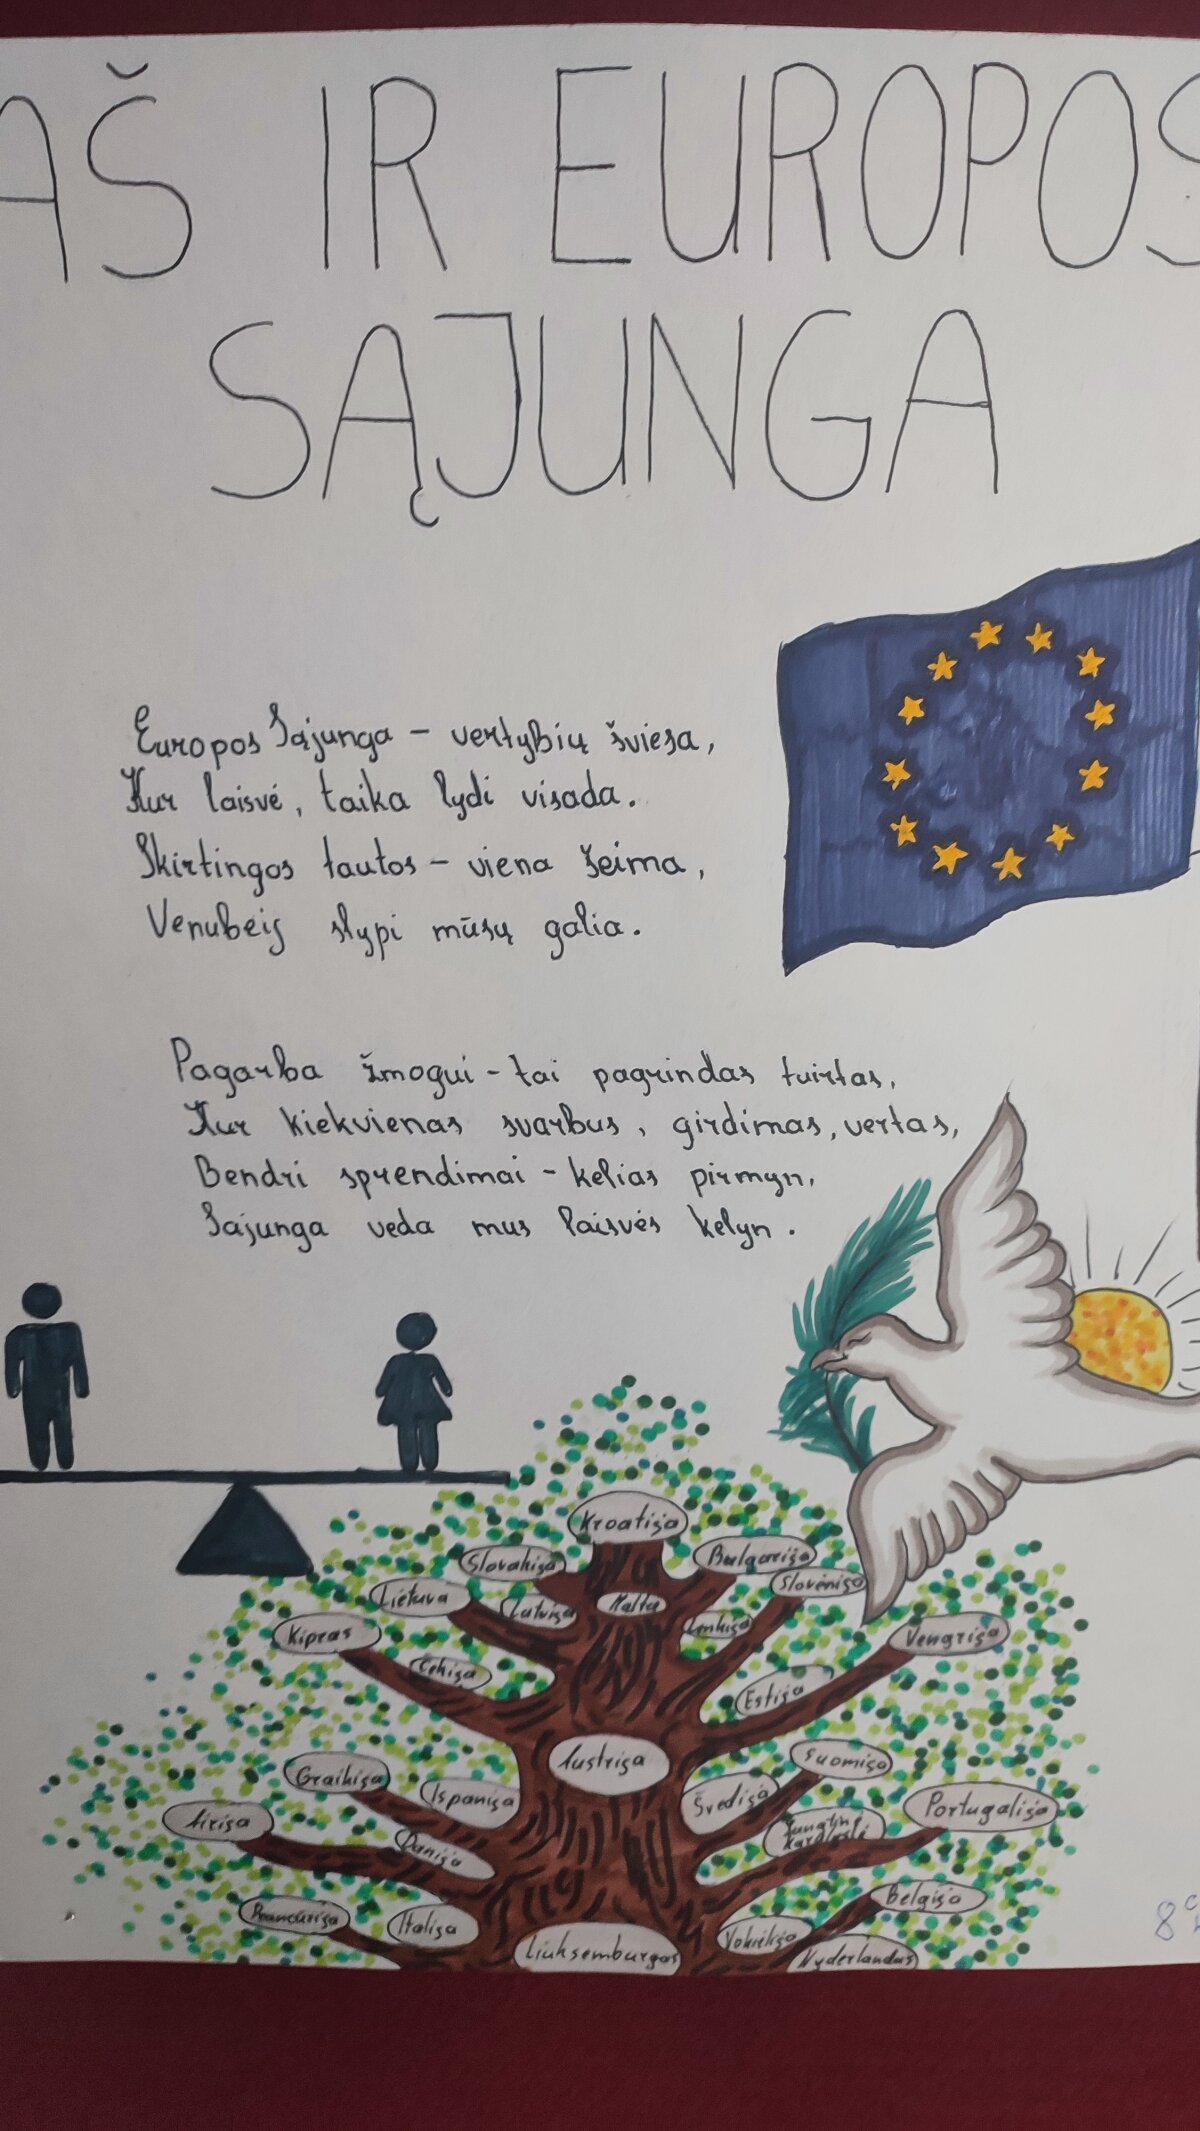 AŠ IR EUROPOS
SĄJUNGA
Europos Sąjunga – vertybių šviesa,
Kur laisvė, taika lydi visada.
Skirtingos tautos – viena šeima,
Venubeis slypi mūsų galia.
Pagarba žmogui – tai pagrindas tvirtas,
Kur kiekvienas svarbus, girdimas, vertas,
Bendri sprendimai – kelias pirmyn,
Sąjunga veda mus laisvės kelyn.
Kroatija
Slovakija
Bulgarija
Lietuva
Latvija
Malta
Slovėnija
Kipras
Lenkija
Vengrija
Čekija
Estija
Austrija
Suomija
Graikija
Ispanija
Švedija
Portugalija
Airija
Danija
Jungtinė
Karalystė
Prancūzija
Italija
Belgija
Liuksemburgas
Vokiėtija
Nyderlandas
8